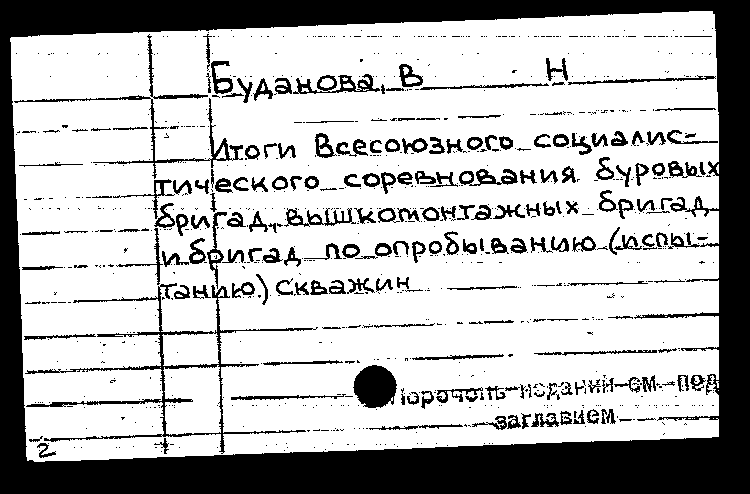 Буданова, В Н
Итоги Всесоюзного социалис-
тического соревнования буровых
бригад, вышкомонтажных бригад
и бригад по опробыванию (испы-
танию) скважин
изданий см. под
заглавием
2